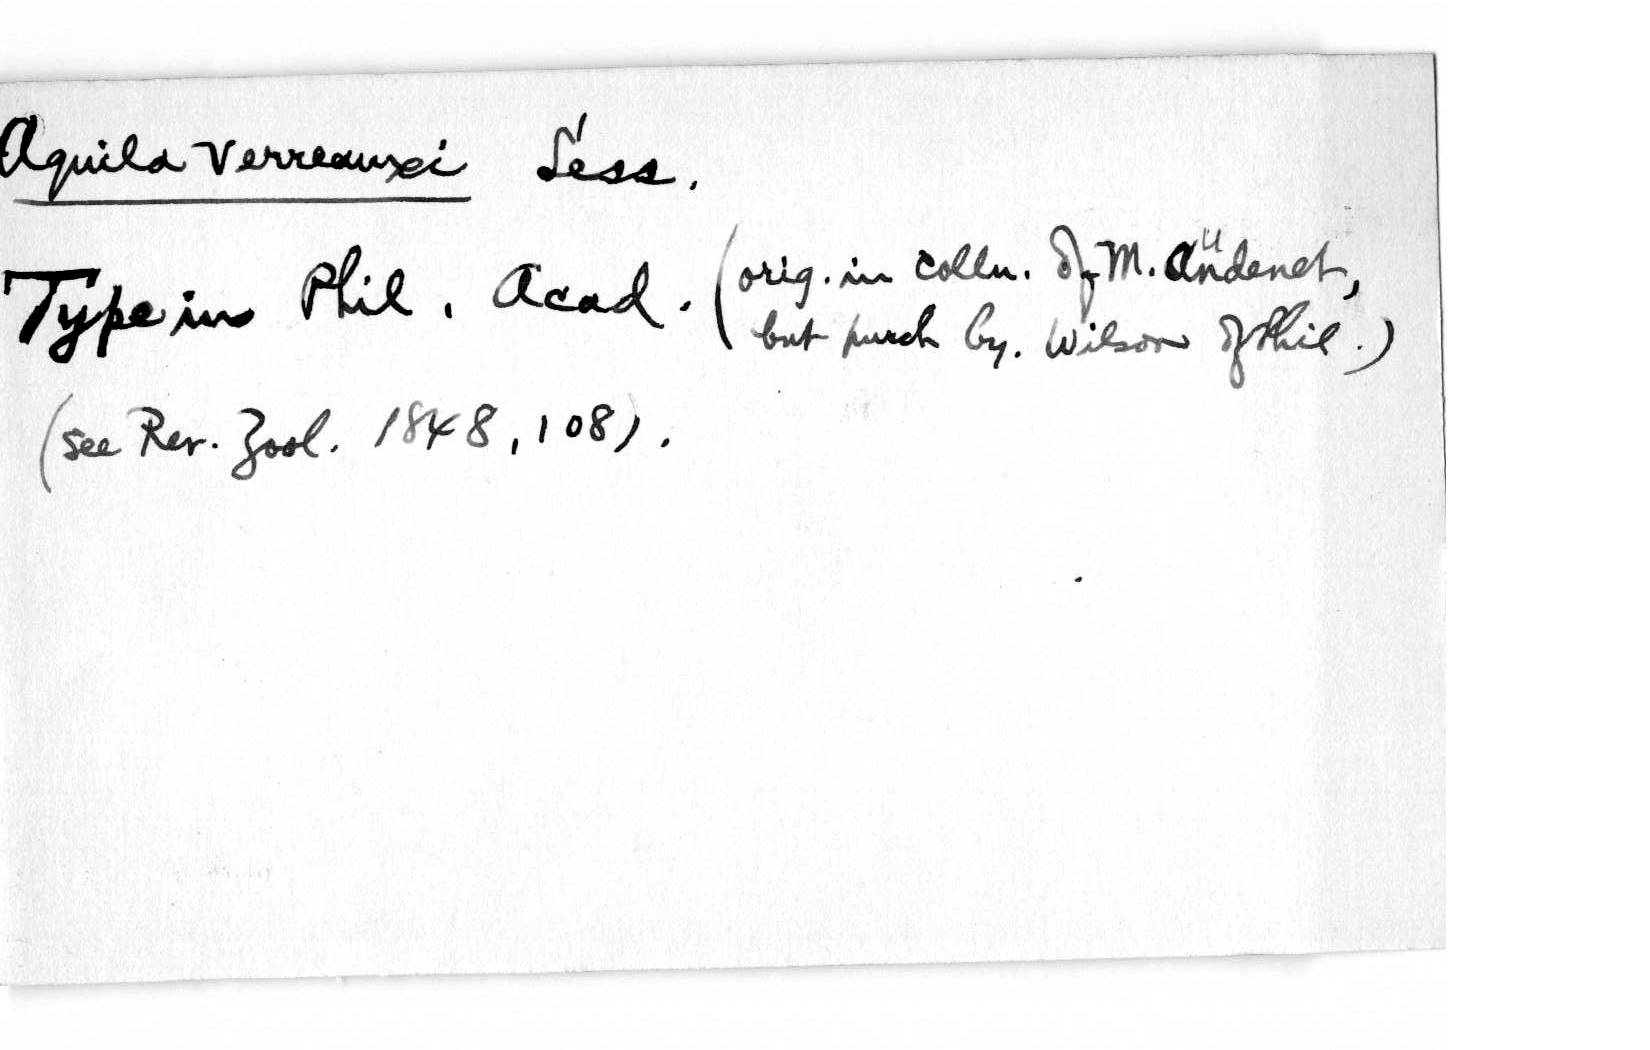 Aquila verreauxi Less.
Type in Phil. Acad. (orig. in colln. of M. Audenet,
but purch by. Wilson of Phil.)
(see Rev. Zool. 1848, 108).